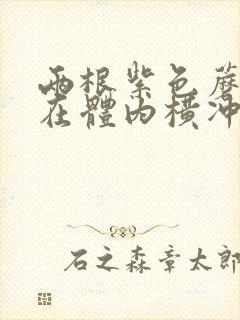 兩根紫色蘑
在體內橫沖
石之森章太郎